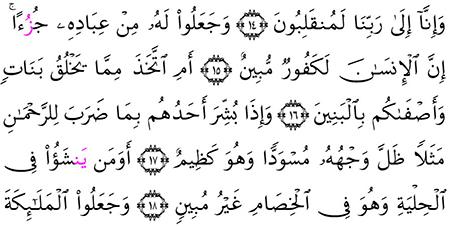 وَإِنَّآ إِلَىٰ رَبِّنَا لَمُنقَلِبُونَ ۝١٤ وَجَعَلُواْ لَهُۥ مِنْ عِبَادِهِۦ جُزُءًاۚ
إِنَّ ٱلْإِنسَٰنَ لَكَفُورٌ مُّبِينٌ ۝١٥ أَمِ ٱتَّخَذَ مِمَّا يَخْلُقُ بَنَاتٍ
وَأَصْفَىٰكُم بِٱلْبَنِينَ ۝١٦ وَإِذَا بُشِّرَ أَحَدُهُم بِمَا ضَرَبَ لِلرَّحْمَٰنِ
مَثَلًا ظَلَّ وَجْهُهُۥ مُسْوَدًّا وَهُوَ كَظِيمٌ ۝١٧ أَوَمَن يَنشَؤُاْ فِى
ٱلْحِلْيَةِ وَهُوَ فِى ٱلْخِصَامِ غَيْرُ مُبِينٍ ۝١٨ وَجَعَلُواْ ٱلْمَلَٰٓئِكَةَ